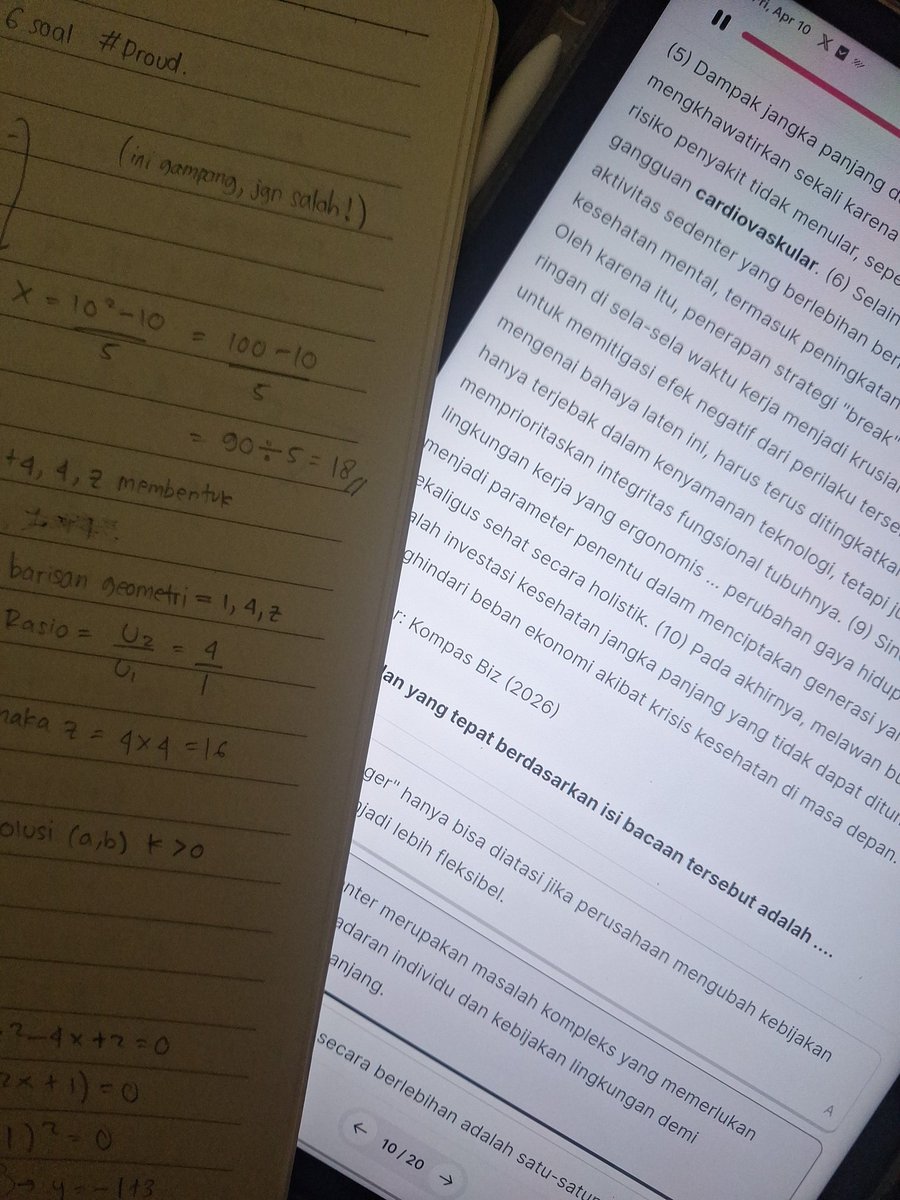 6 soal #Proud.
(ini gampang, jgn salah!)
X = 10² - 10 = 100 - 10
5 5
= 90 ÷ 5 = 18 //
+4, 4, z membentuk
barisan geometri = 1, 4, z
Rasio = U2 = 4
U1 1
maka z = 4 x 4 = 16
olusi (a,b) k > 0
- 4x + 2 = 0
2x + 1) = 0
1)² = 0
→ y = -1+3
ri, Apr 10
(5) Dampak jangka panjang d
mengkhawatirkan sekali karena
risiko penyakit tidak menular, sepe
gangguan cardiovaskular. (6) Selain
aktivitas sedenter yang berlebihan ber
kesehatan mental, termasuk peningkatan
Oleh karena itu, penerapan strategi "break"
ringan di sela-sela waktu kerja menjadi krusial
untuk memitigasi efek negatif dari perilaku terse
mengenai bahaya laten ini, harus terus ditingkatka
hanya terjebak dalam kenyamanan teknologi, tetapi ju
memprioritaskan integritas fungsional tubuhnya. (9) Sin
lingkungan kerja yang ergonomis ... perubahan gaya hidup
menjadi parameter penentu dalam menciptakan generasi ya
ekaligus sehat secara holistik. (10) Pada akhirnya, melawan bu
alah investasi kesehatan jangka panjang yang tidak dapat ditu
ghindari beban ekonomi akibat krisis kesehatan di masa depan.
r: Kompas Biz (2026)
an yang tepat berdasarkan isi bacaan tersebut adalah ....
ger" hanya bisa diatasi jika perusahaan mengubah kebijakan
jadi lebih fleksibel.
A
nter merupakan masalah kompleks yang memerlukan
adaran individu dan kebijakan lingkungan demi
anjang.
secara berlebihan adalah satu-satun
← 10 / 20 →